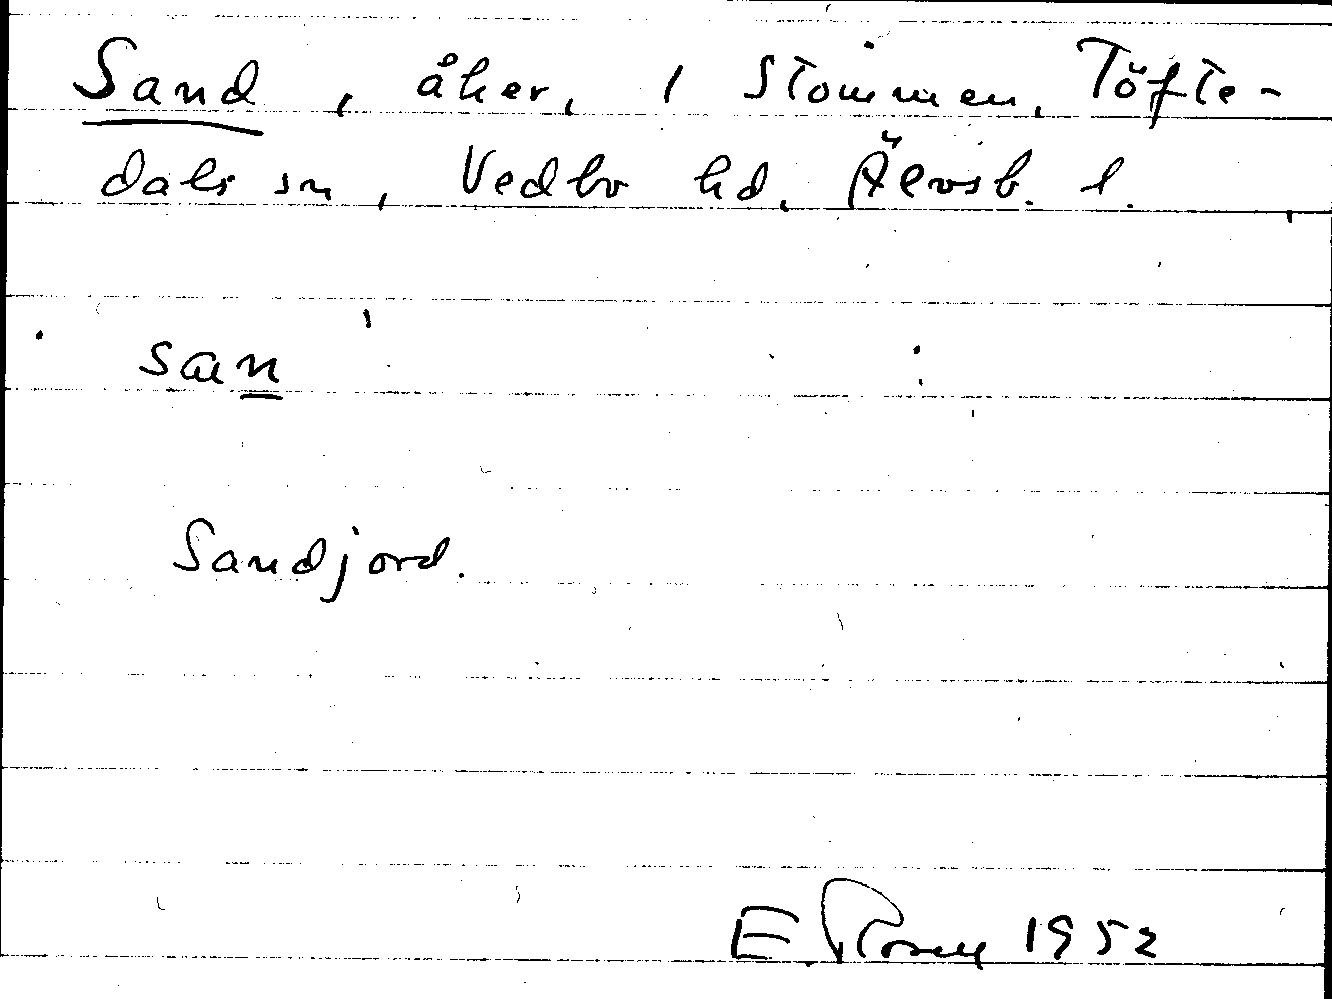 Sand, åker, 1 Stommen, Töfte-
dals sn, Vedbo hd, Älvsb. l.
san
Sandjord.
E. Rosell 1952